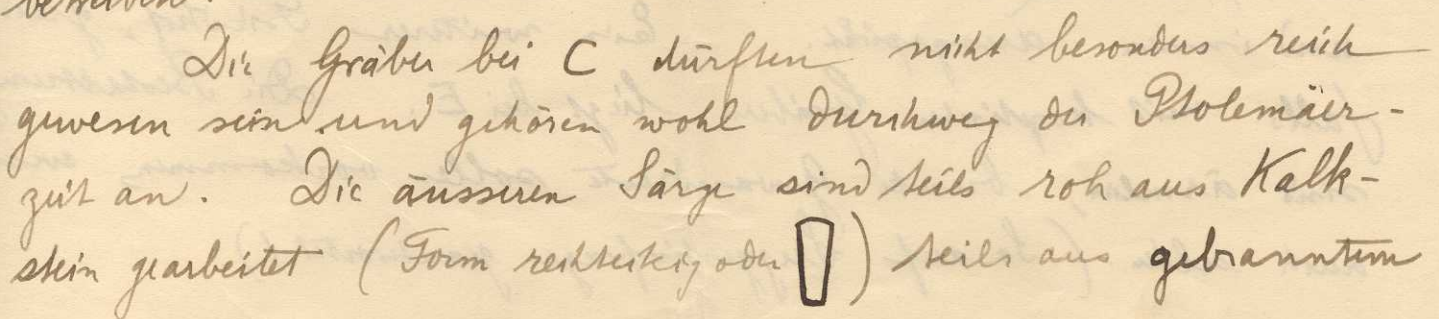 betreiben.
Die Gräber bei C dürften nicht besonders reich
gewesen sein und gehören wohl durchweg der Ptolemäer-
zeit an. Die äusseren Särge sind teils roh aus Kalk-
stein gearbeitet (Form rechteckig oder ) teils aus gebranntem